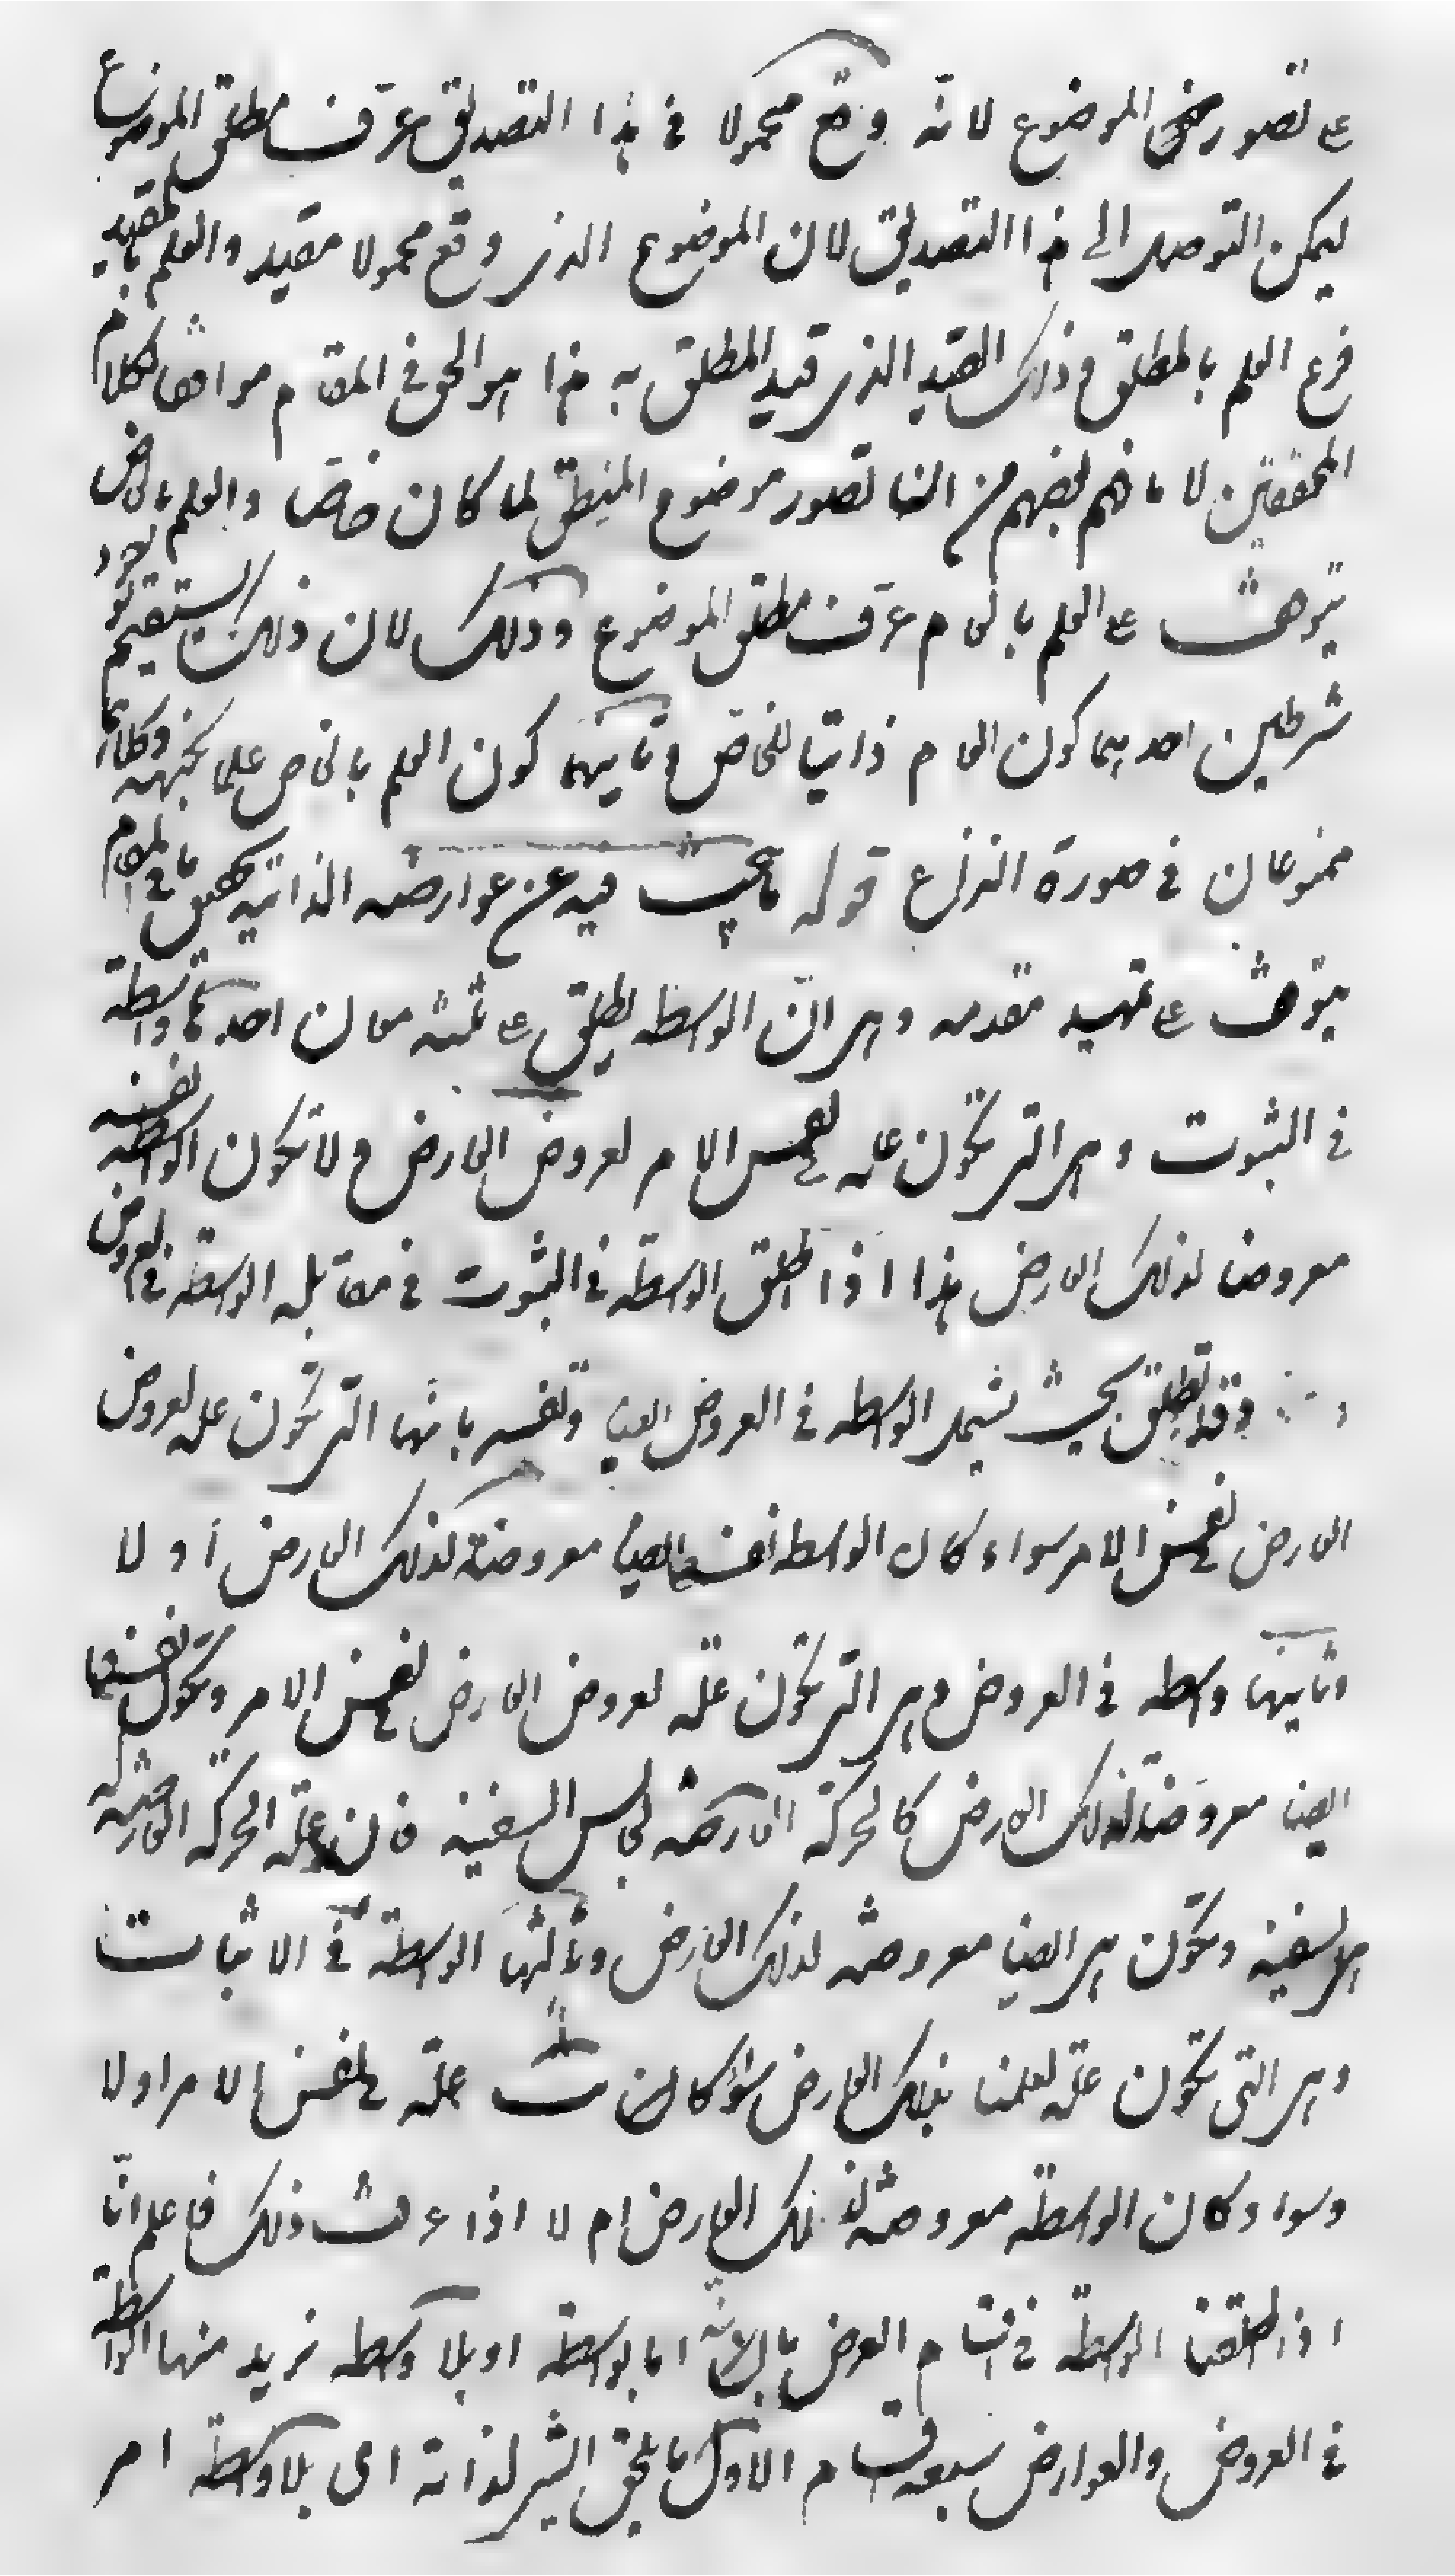 على تصور مفهوم الموضوع لانه وقع محمولا فى هذا التصديق عرّف مطلق الموضوع
ليمكن التوصل الى هذا التصديق لان الموضوع الذى وقع محمولا مقيد والعلم بالمقيد
فرع العلم بالمطلق وذلك القيد الذى قيد المطلق به هذا هو الحق فى المقام موافقا لكلام
المحققين لا ما فهم بعضهم من ان تصور موضوع المنطق لما كان خاصّا والعلم بالخاص
يتوقف على العلم بالعام عرّف مطلق الموضوع وذلك لان ذلك يستقيم بوجود
شرطين احدهما كون العام ذاتيا للخاصّ وثانيهما كون العلم بالخاص علما بكنهه وكلاهما
ممنوعان فى صورة النزاع قوله ما يبحث فيه عن عوارضه الذاتية تحقيق ما فى المقام
يتوقف على تمهيد مقدمه وهى انّ الواسطه يطلق على ثلثه معان احدها واسطة
فى الثبوت وهى التى تكون علة فى نفس الامر لعروض العارض ولا تكون الواسطه نفسه
معروضا لذلك العارض هذا اذا اطلق الواسطة فى الثبوت فى مقابلة الواسطة فى العروض
وقد تطلق بحيث يشمل الواسطه فى العروض ايضا وتفسر بانّها التى تكون علة لعروض
العارض فى نفس الامر سواء كان الواسطه نفسها ايضا معروضة لذلك العارض او لا
وثانيها واسطه فى العروض وهى التى تكون علّة لعروض العارض فى نفس الامر وتكون نفسها
ايضا معروضة لذلك العارض كالحركة العارضة لجالس السفينة فان علة الحركة العارضة له
هى السفينه وتكون هى ايضا معروضة لذلك العارض وثالثها الواسطة فى الاثبات
وهى التى تكون علّة لعلمنا بذلك العارض سواء كانت علّة فى نفس الامر او لا
وسواء كان الواسطة معروضة لذلك العارض ام لا اذا عرفت ذلك فاعلم انّا
اذا اطلقنا الواسطة فى اقسام العرض بانه اما بواسطة او بلا واسطه نريد منها الواسطة
فى العروض والعوارض سبعه اقسام الاول ما يلحق الشىء لذاته اى بلا واسطة امر